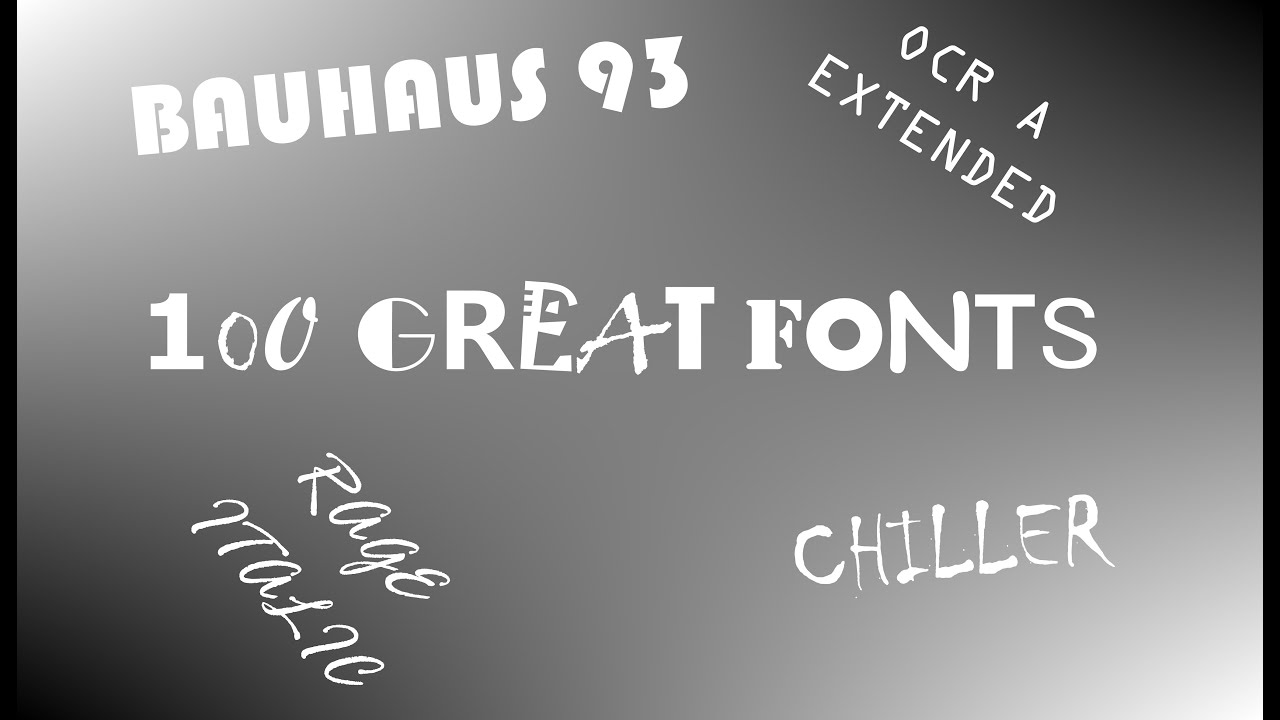 BAUHAUS 93
OCR A
EXTENDED
100 GREAT FONTS
RAGE
ITALIC
CHILLER